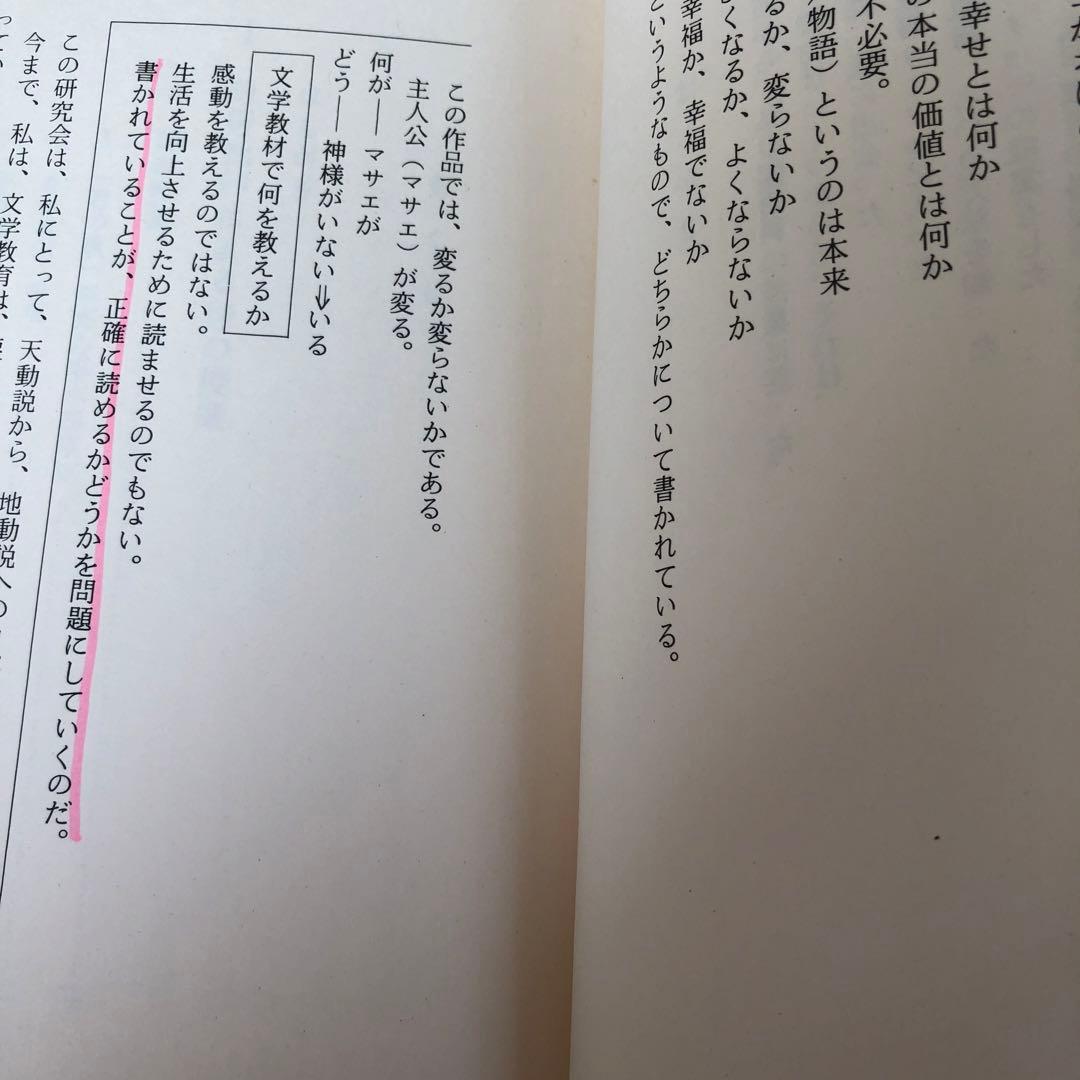 幸せとは何か
の本当の価値とは何か
不必要。
物語）というのは本来
るか、変らないか
くなるか、よくならないか
幸福か、幸福でないか
というようなもので、どちらかについて書かれている。
この作品では、変るか変らないかである。
主人公（マサエ）が変る。
何が―― マサエが
どう―― 神様がいない⇒いる
文学教材で何を教えるか
感動を教えるのではない。
生活を向上させるために読ませるのでもない。
書かれていることが、正確に読めるかどうかを問題にしていくのだ。
この研究会は、私にとって、天動説から、地動説への
今まで、私は、文学教育は、